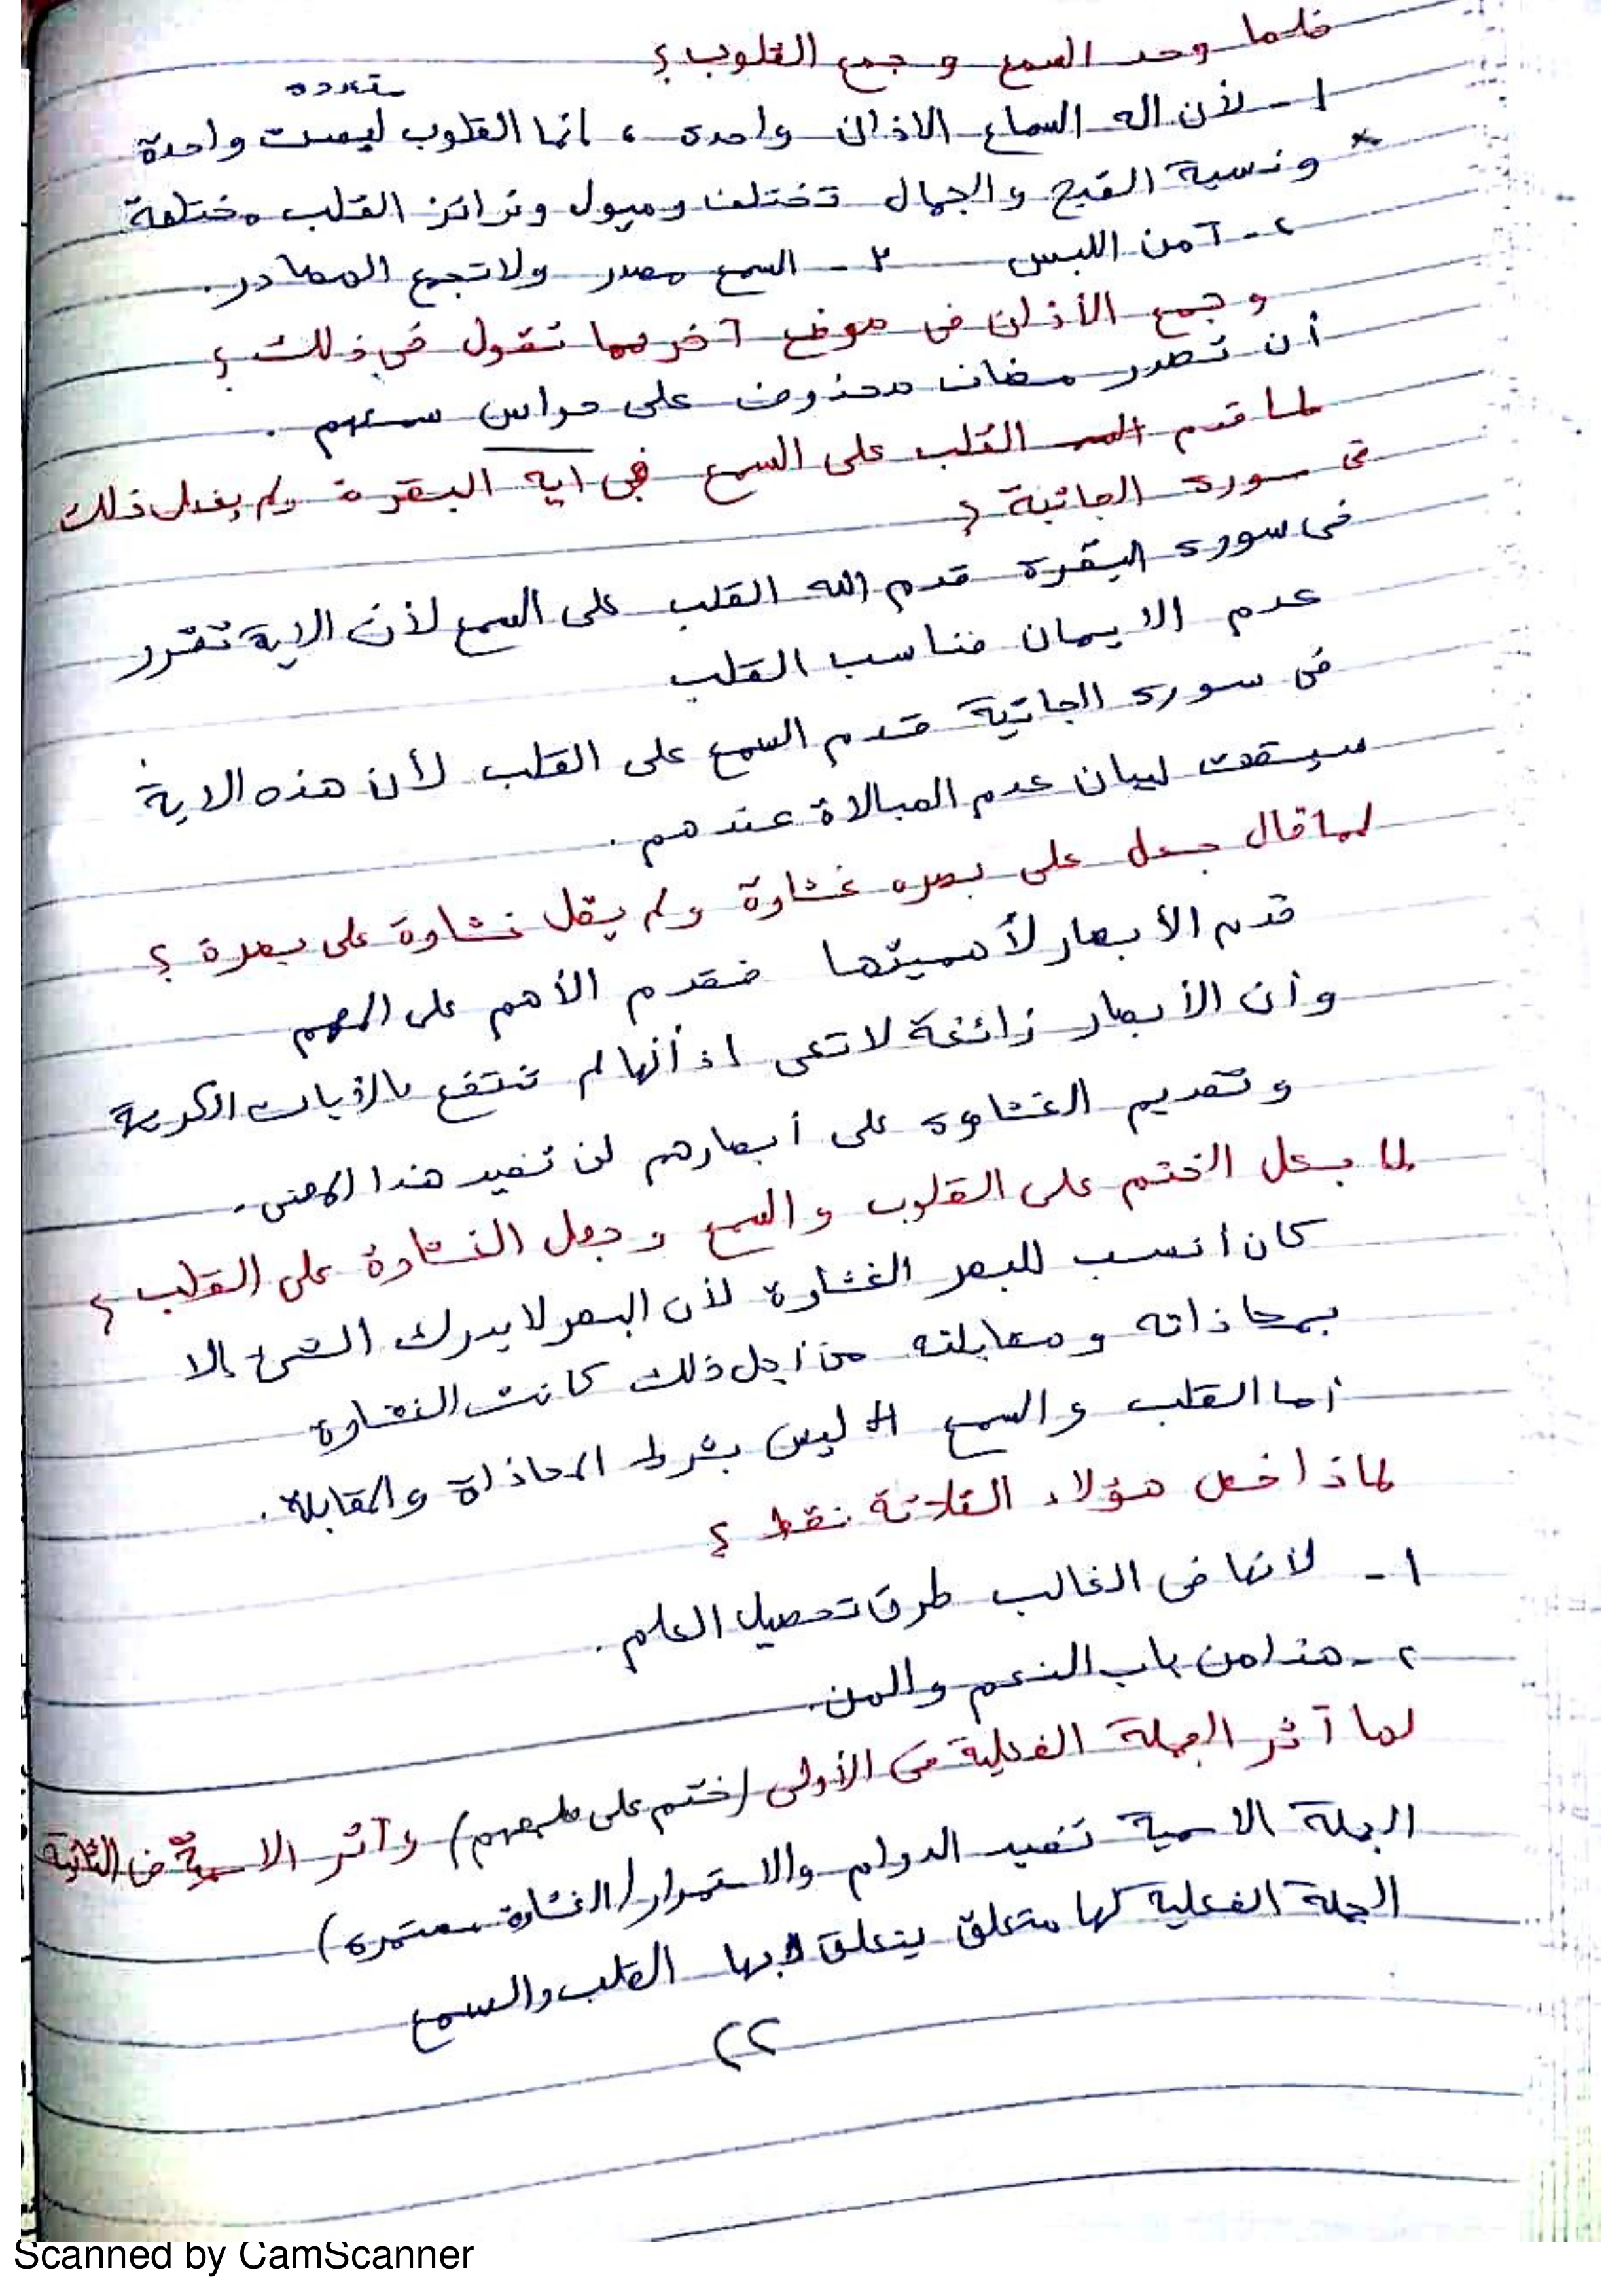 فلما وحد السمع و جمع القلوب ؟
متعدده
١ - لأن اله السماع الاذان واحدة ، انما القلوب ليست واحدة
* ونسبة القبح والجمال تختلف وميول وتراكز القلب مختلفة
٢ - آمن اللبس ٣ - السمع مصدر ولا تجمع المصادر .
وجمع الأذان فى موضع آخر فما تقول فى ذلك ؟
أن تصدر مضاف محذوف على حواس سمعهم .
لما قدم القلب على السمع فى ايه البقرة ولم يفعل ذلك
فى سورة الجاثية ؟
فى سورة البقرة قدم الله القلب على السمع لأن الاية تقرر
عدم الايمان فناسب القلب
فى سورة الجاثية قدم السمع على القلب لأن هذه الاية
سيقت لبيان عدم المبالاة عندهم .
لما قال جعل على بصره غشاوة ولم يقل غشاوة على بصرة ؟
قدم الأبصار لأهميتها فقدم الأهم على المهم
وأن الأبصار زائغة لا تعى اذ أنها لم تنتفع بالأيات الكريمة
وتقديم الغشاوه على أبصارهم لن تفيد هذا المعنى .
لما جعل الختم على القلوب والسمع وجعل الغشاوة على القلب ؟
كان أنسب للبصر الغشاوة لأن البصر لا يدرك الشئ إلا
بمحاذاته ومقابلته من أجل ذلك كانت الغشاوة
أما القلب والسمع ليس بشرط المحاذاة والمقابلة .
لماذا خص هؤلاء الثلاثة فقط ؟
١ - لانها فى الغالب طرق تحصيل العلم .
٢ - هذا من باب النعم والمن .
لما آثر الجملة الفعلية فى الأولى (ختم على قلوبهم) وآثر الاسمية فى الثانية
الجملة الاسمية تفيد الدوام والاستمرار (الغشاوة مستمره)
الجملة الفعلية لها متعلق يتعلق بها القلب والسمع
٢٢
Scanned by CamScanner